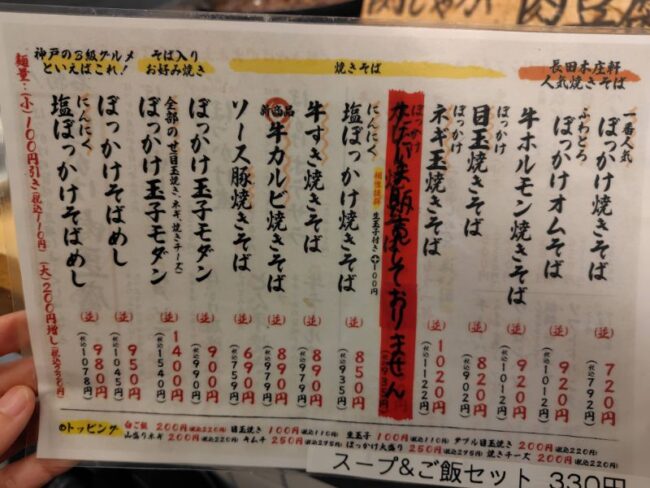 長田本庄軒
人気焼きそば
一番人気
ぼっかけ焼きそば
(並)
720円
(税込792円)
ふわとろ
ぼっかけオムそば
(並)
920円
(税込1012円)
牛ホルモン焼きそば
(並)
920円
(税込1012円)
焼きそば
ぼっかけ
目玉焼きそば
(並)
820円
ぼっかけ
ネギ玉焼きそば
(並)
1020円
(税込1122円)
ぼっかけ
販売しておりません
にんにく
塩ぼっかけ焼きそば
生玉子付き+100円
(並)
850円
(税込935円)
牛すき焼きそば
(並)
890円
(税込979円)
新商品
牛カルビ焼きそば
(並)
890円
(税込979円)
ソース豚焼きそば
(並)
690円
(税込759円)
そば入り
お好み焼き
ぼっかけ玉子モダン
(並)
900円
(税込990円)
全部のせ(目玉焼き、ネギ、焼きチーズ)
ぼっかけ玉子モダン
(並)
1400円
(税込1540円)
神戸のB級グルメ
といえばこれ!
ぼっかけそばめし
(並)
950円
(税込1045円)
にんにく
塩ぼっかけそばめし
(並)
980円
(税込1078円)
麺量…(小)100円引き(税込110円) (大)200円増し
◎トッピング
白ご飯 200円(税込220円) 目玉焼き 100円(税込110円) 生玉子 100円(税込110円) ダブル目玉焼き 200円(税込220円)
山盛りネギ 200円(税込220円) キムチ 250円(税込275円) ぼっかけ大盛り 250円(税込275円) 焼きチーズ 200円(税込220円)
スープ&ご飯セット 330円